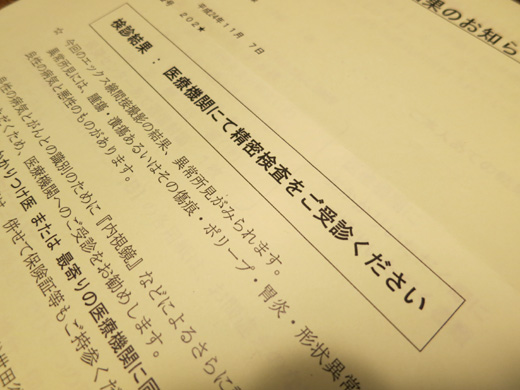 果のお知ら
平成24年11月 7日
号 202★
検診結果 : 医療機関にて精密検査をご受診ください
☆ 今回のエックス線間接撮影の結果、異常所見がみられます。
異常所見には、腫瘍・潰瘍あるいはその傷痕・ポリープ・胃炎・形状異常
良性の病気と悪性のものがあります。
良性の病気とがんとの識別のために『内視鏡』などによるさらに
ただくため、医療機関へのご受診をお勧めします。
かかりつけ医 または 最寄りの医療機関に
併せて保険証等もご持参くだ
世田